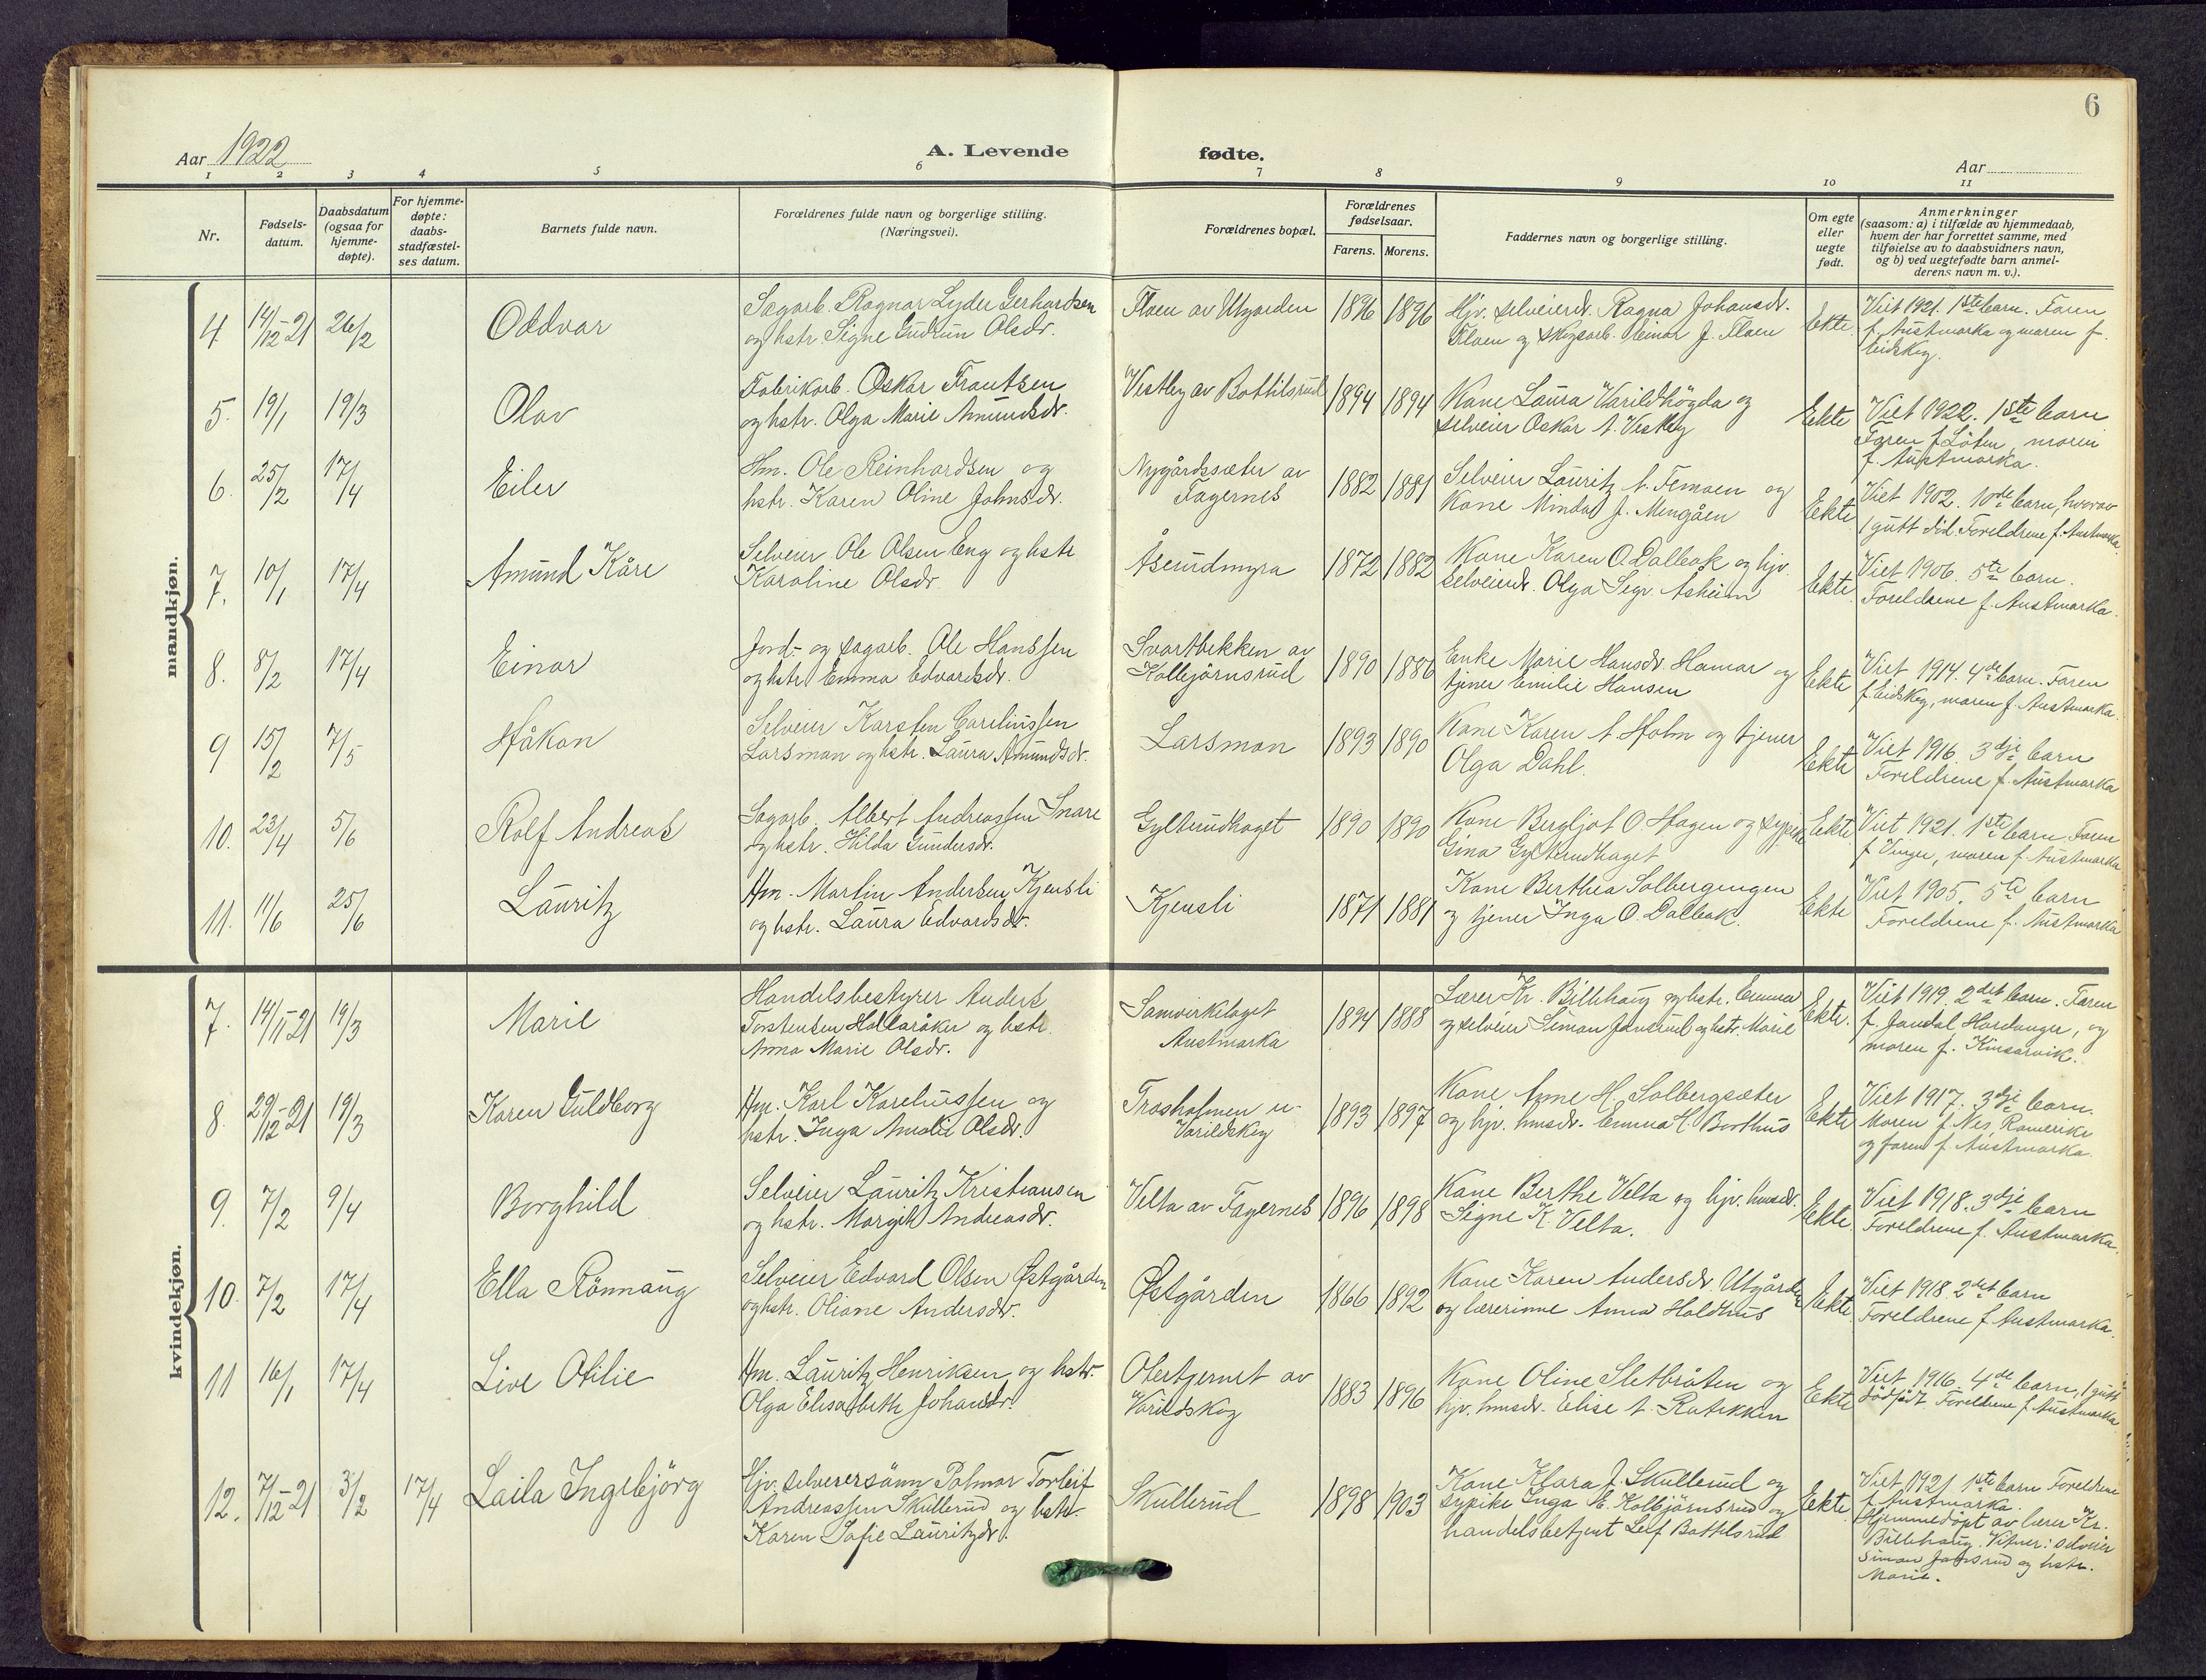 6
Aar 1922
A. Levende
fødte.
Aar
1 2 3 4 5 6 7 8 9 10 11
Nr.
Fødsels-
datum.
Daabsdatum
(ogsaa for
hjemme-
døpte).
For hjemme-
døpte:
daabs-
stadfæstel-
ses datum.
Barnets fulde navn.
Forældrenes fulde navn og borgerlige stilling.
(Næringsvei).
Forældrenes bopæl.
Forældrenes
fødselsaar.
Farens. Morens.
Faddernes navn og borgerlige stilling.
Om egte
eller
uegte
født.
Anmerkninger
(saasom: a) i tilfælde av hjemmedaab,
hvem der har forrettet samme, med
tilføielse av to daabsvidners navn,
og b) ved uegtefødte barn anmel-
derens navn m. v.).
mandkjøn.
4. 14/12-21 26/2
Oddvar
Sagarb. Ragnar Lyder Gerhardsen
og hstr. Signe Gudrun Olsdr.
Floen av Utgarden
1896 1896
Hjv. selveierdr. Ragna Johansdr.
Floen og skogsarb. Einar J. Floen
Ekte.
Viet 1921. 1ste barn. Faren
f. Austmarka og moren f.
Eidskog.
5. 19/1 19/3
Olav
Fabrikarb. Oskar Frantsen
og hstr. Olga Marie Amundsdr.
Vestby av Bottilsrud
1894 1894
Kone Laura Varildhögda og
selveier Oskar A. Vestby
Ekte
Viet 1922. 1ste barn
Faren f. Löten, moren
f. Austmarka.
6. 25/2 17/4
Eiler
Hm. Ole Reinhardsen og
hstr. Karen Oline Johnsdr.
Nygårdssæter av
Fagernes
1882 1881
Selveier Lauritz A. Femoen og
Kone Minda J. Mengåen
Ekte
Viet 1902. 10de barn, hvorav
1 gutt död. Foreldrene f. Austmarka
7. 10/1 17/4
Amund Kåre
Selveier Ole Olsen Eng og hstr
Karoline Olsdr.
Åserudmyra
1872 1882
Kone Karen O. Dalbak og hjv.
selveierdr. Olga Sigr. Asheim
Ekte.
Viet 1906. 5te barn.
Foreldrene f. Austmarka.
8. 8/2 17/4
Einar
Jord- og sagarb. Ole Hanssen
og hstr. Emma Edvardsdr.
Svartbekken av
Kolbjörnsrud
1890 1886
Enke Marie Hansdr. Hamar og
tjener Emilie Hansen
Ekte
Viet 1914. 4de barn. Faren
f. Eidskog, moren f. Austmarka.
9 15/2 7/5
Håkon
Selveier Karsten Careliussen
Larsmon og hstr. Laura Amundsdr.
Larsmon
1893 1890
Kone Karen A. Holm og tjener
Olga Dahl.
Ekte
Viet 1916. 3dje barn
Foreldrene f. Austmarka
10. 23/4 5/6
Rolf Andreas
Sagarb. Albert Andreassen Snare
og hstr. Hilda Gundersdr.
Gylterudhaget
1890 1890
Kone Bergljot O Hagen og sypike
Gina Gylterudhaget
Ekte.
Viet 1921. 1ste barn Faren
f. Vinger, moren f. Austmarka
11. 11/6 25/6
Lauritz
Hm. Martin Andersen Kjensli
og hstr. Laura Edvardsdr.
Kjensli
1871 1881
Kone Berthea Solbergengen
og tjener Inga O. Dalbak.
Ekte
Viet 1905. 5te barn
Foreldrene f. Austmarka
kvindekjøn.
7. 14/11-21 19/3
Marie
Handelsbestyrer Anders
Torstensen Hallaråker og hstr.
Anna Marie Olsdr.
Samvirkelaget
Austmarka
1894 1888
Lærer Kr. Billehaug og hstr. Emma
og selveier Simon Jansrud og hstr. Marie
Ekte.
Viet 1919. 2det barn. Faren
f. Jondal Hardanger, og
moren f. Kinsarvik.
8. 29/12-21 19/3
Karen Guldborg
Hm. Karl Kareliussen og
hstr. Inga Amalie Olsdr.
Trosholmen u.
Varildskog
1893 1897
Kone Anne H. Solbergsæter
og hjv. hmsdr. Emma H. Borthus
Ekte
Viet 1917. 3dje barn.
Moren f. Nes, Romerike
og faren f. Austmarka.
9. 7/2 9/4
Borghild
Selveier Lauritz Kristiansen
og hstr. Margit Andreasdr.
Velta av Fagernes
1896 1898
Kone Berthe Velta og hjv. hmsdr.
Signe K. Velta.
Ekte.
Viet 1918. 3dje barn
Foreldrene f. Austmarka.
10. 7/2 17/4
Ella Rönnaug
Selveier Edvard Olsen Østgården
og hstr. Oliane Andersdr.
Østgården
1866 1892
Kone Karen Andersdr. Utgården
og lærerinne Anna Holdhus
Ekte.
Viet 1918. 2det barn
Foreldrene f. Austmarka.
11 16/1 17/4
Live Otilie
Hm. Lauritz Henriksen og hstr.
Olga Elisabeth Johansdr.
Obertjernet av
Varildskog
1883 1896
Kone Oline Sletbråten og
hjv. hmsdr. Elise A. Ratikken
Ekte
Viet 1916. 4de barn, 1 gutt
dödfödt Foreldrene f. Austmarka
12. 7/12-21 3/2 17/4
Laila Ingebjörg
Hjv. selveiersönn Palmar Torleif
Andreassen Skullerud og hstr.
Karen Sofie Lauritzdr.
Skullerud
1898 1903
Kone Klara J. Skullerud og
sypike Inga E. Kolbjörnsrud og
handelsbetjent Leif Bottilsrud
Ekte.
Viet 1921. 1ste barn Foreldrene
f. Austmarka.
Hjemmedöpt av lærer Kr.
Billehaug. Vitner: selveier
Simon Jansrud og hstr.
Marie.